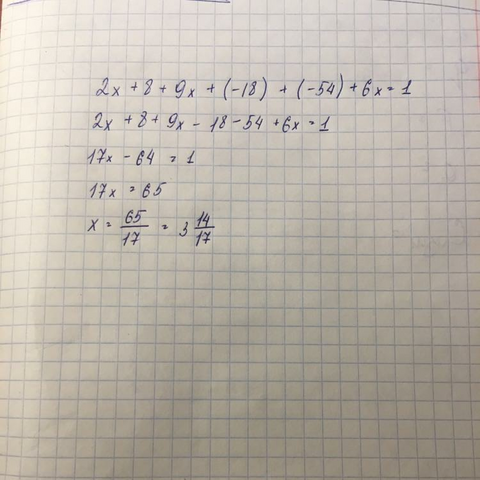 2x + 8 + 9x + (-18) + (-54) + 6x = 1
2x + 8 + 9x - 18 - 54 + 6x = 1
17x - 64 = 1
17x = 65
x = 65/17 = 3 14/17